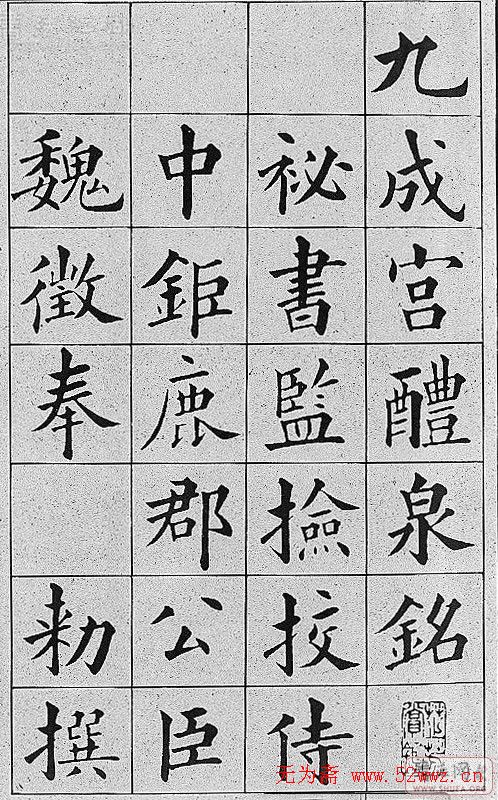 九成宮醴泉銘
祕書監撿挍侍
中鉅鹿郡公臣
魏徵奉 勑撰
无为斋 www.52wwz.cn
WWW.SHUFA.ORG